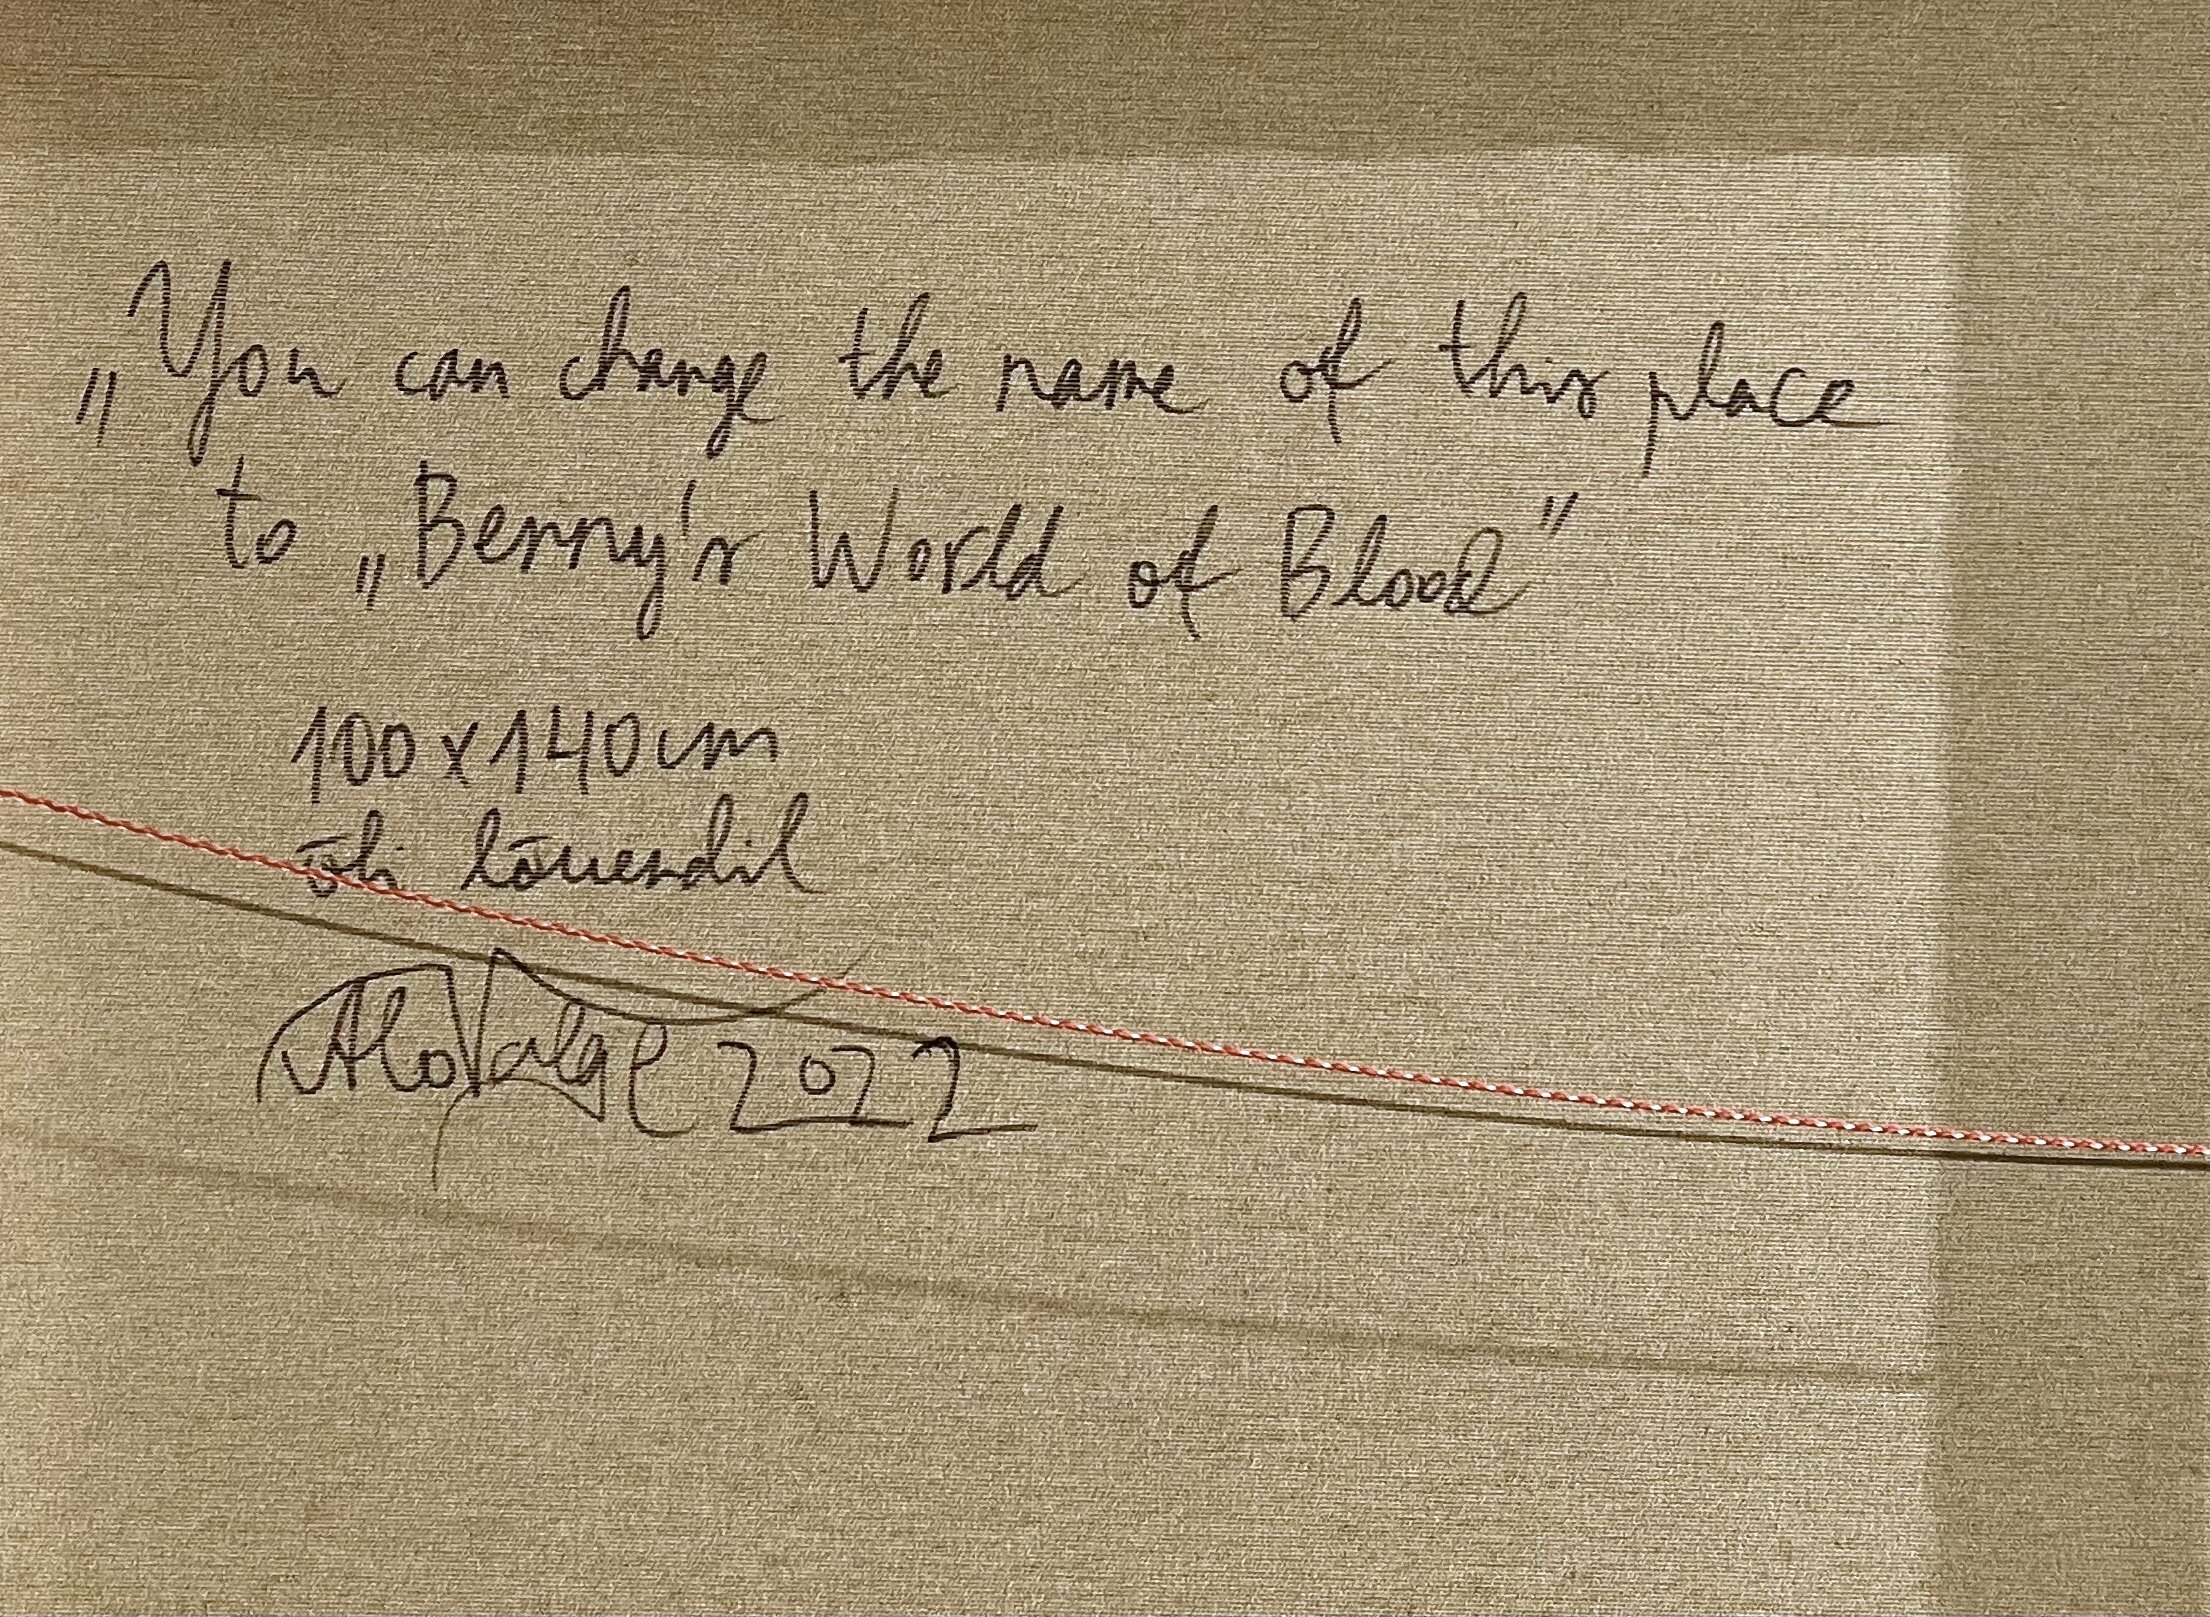 „You can change the name of this place
to „Benny's World of Blood"
100x140cm
õli lõuendil
Alo Valge 2022